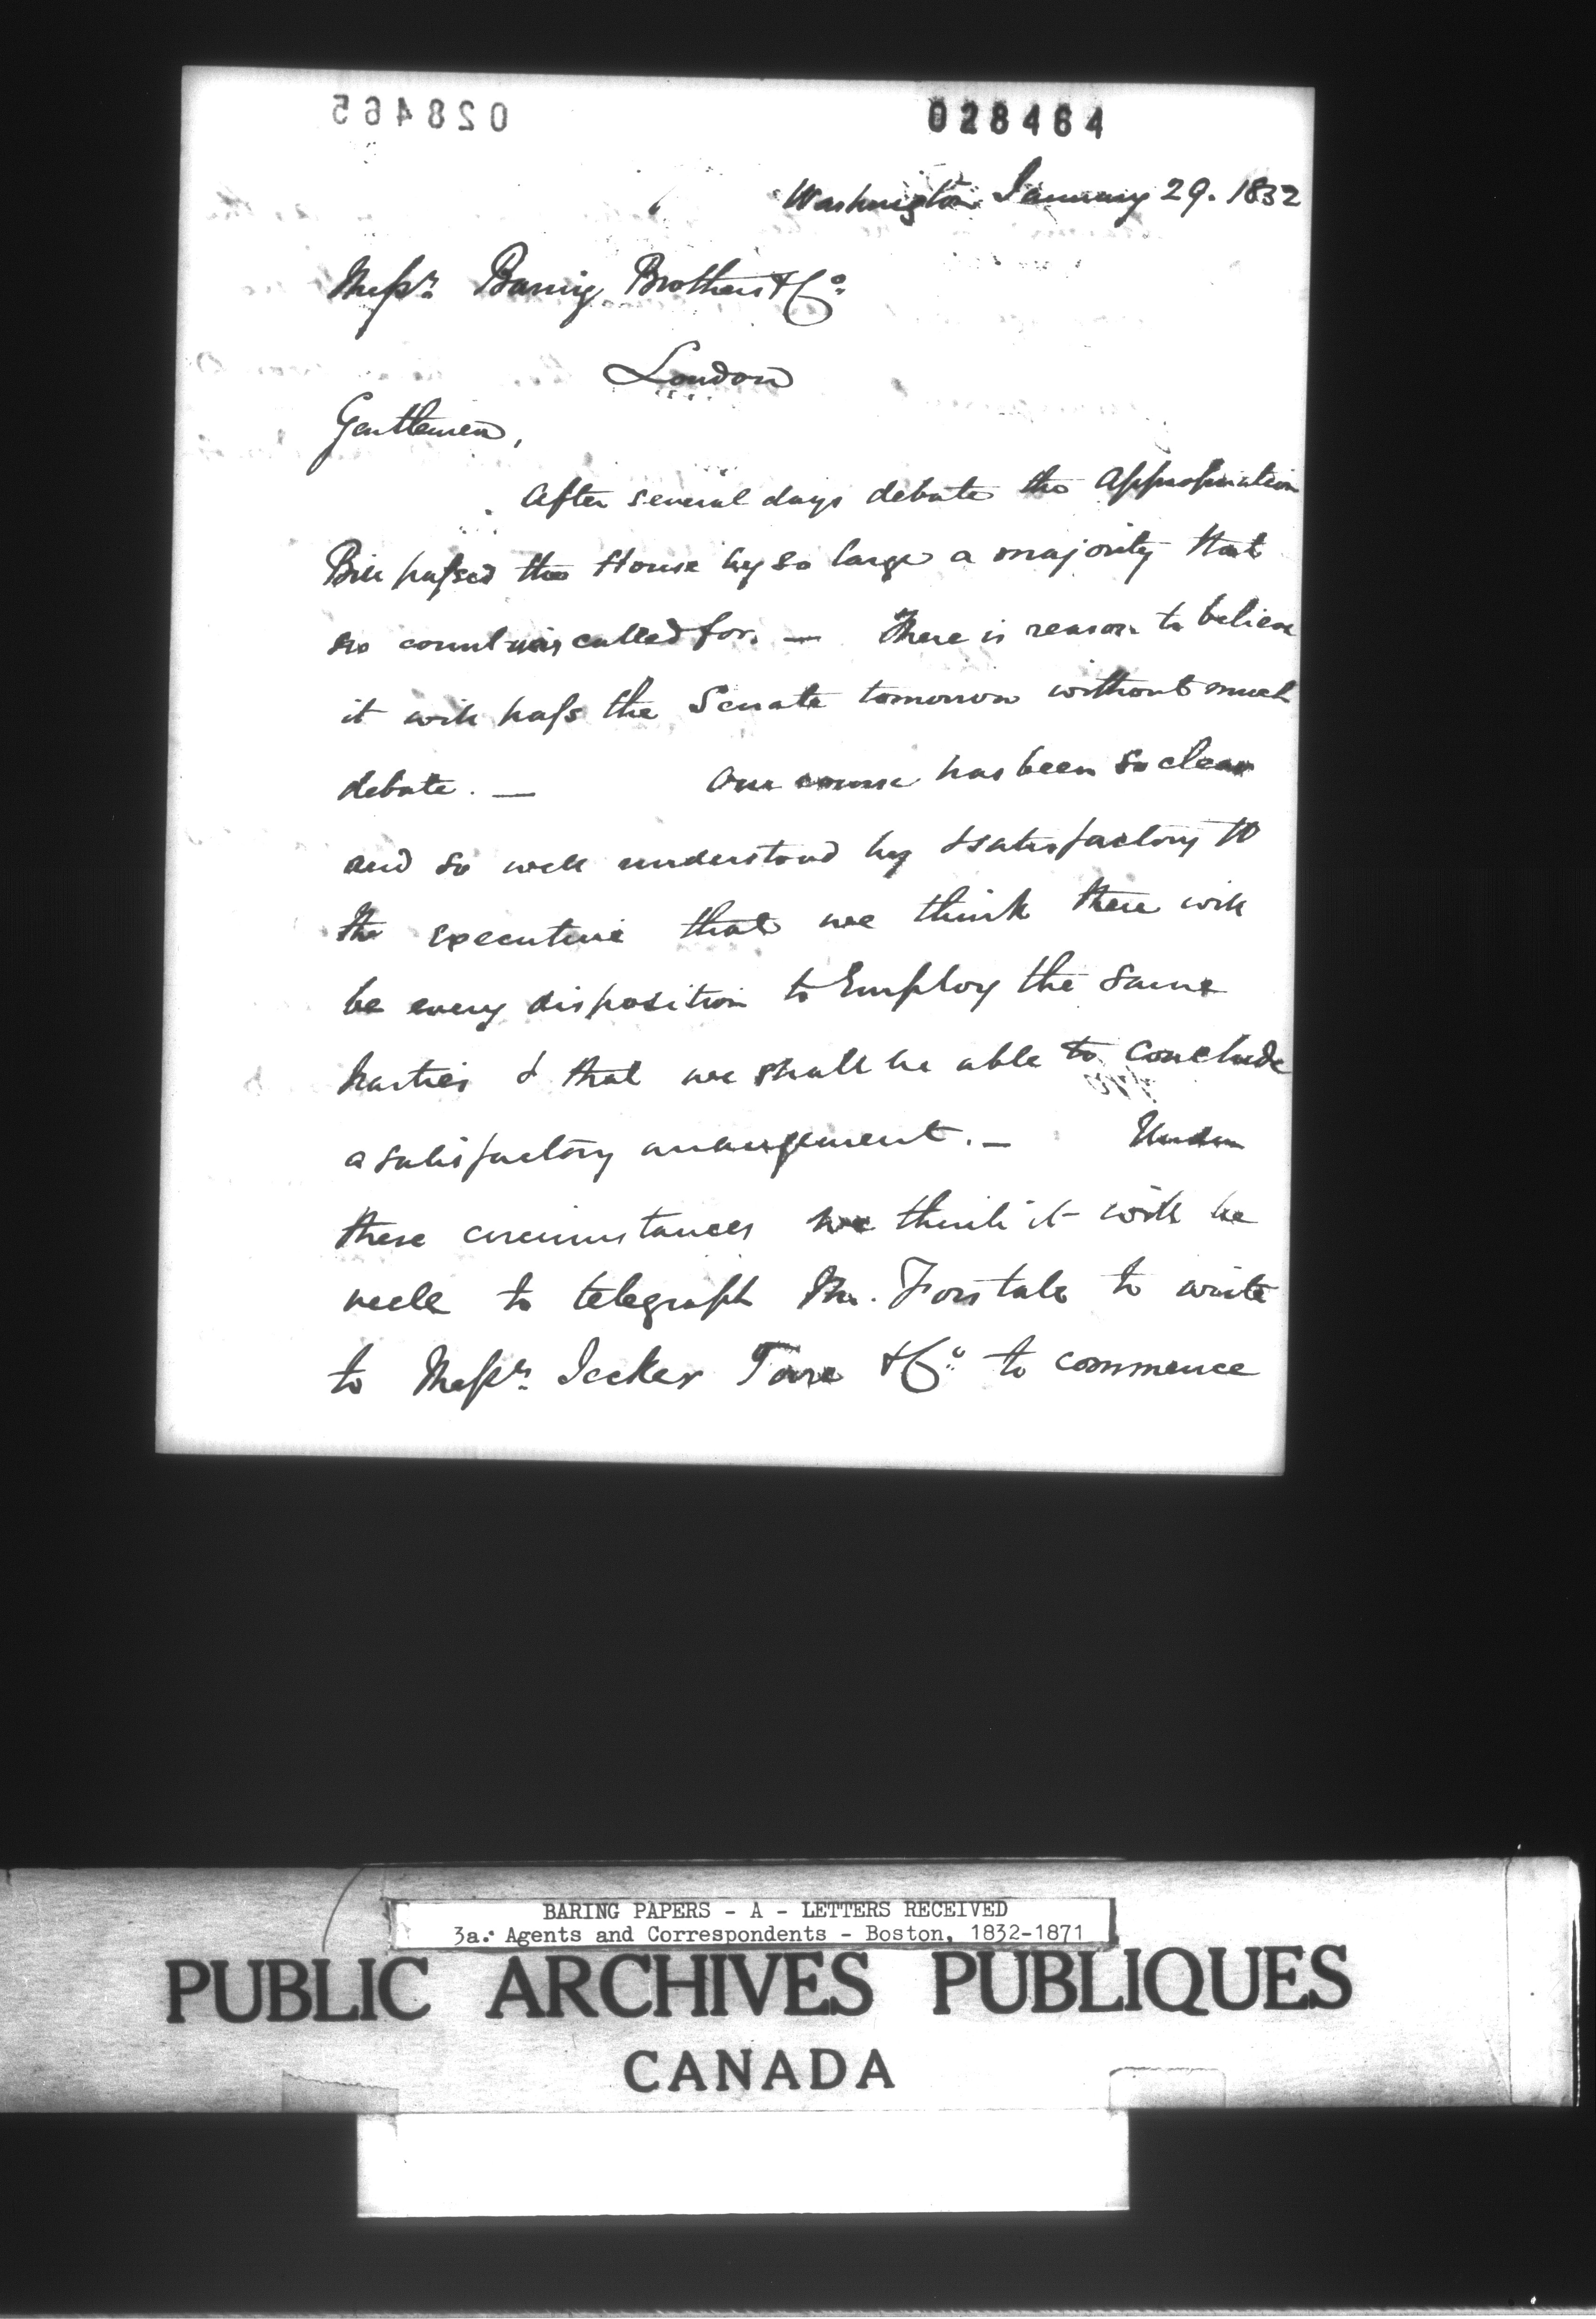 028465
028464
Washington January 29. 1832
Messrs. Baring Brothers & Co.
London
Gentlemen,
After several days debate the appropriation
Bill passed the House by so large a majority that
no count was called for. — There is reason to believe
it will pass the Senate tomorrow without much
debate. — Our course has been so clear
and so well understood by & satisfactory to
the executive that we think there will
be every disposition to Employ the same
parties & that we shall be able to conclude
a satisfactory arrangement. — Under
these circumstances we think it will be
well to telegraph Mr. Forstall to write
to Messrs. Jecker Torre & Co. to commence
BARING PAPERS - A - LETTERS RECEIVED
3a. Agents and Correspondents - Boston, 1832-1871
PUBLIC ARCHIVES PUBLIQUES
CANADA